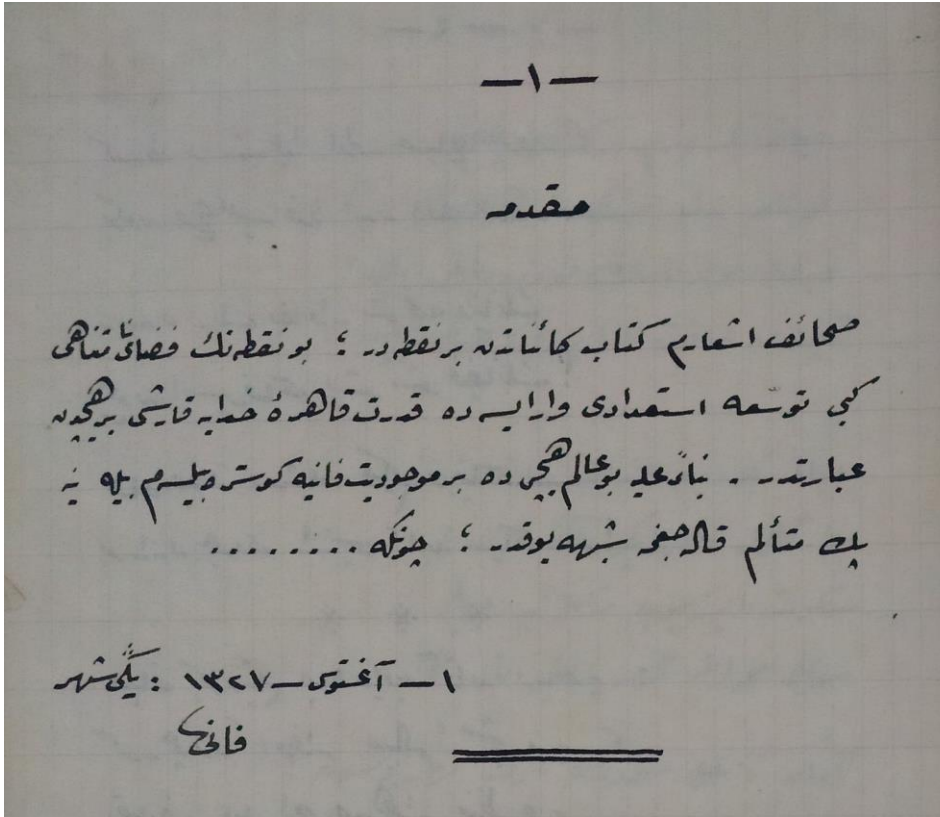 —١—
مقدمه
صحائف اشعارم كتاب كائناتدن بر نقطه در ؛ بو نقطه نك فضاى نامتناهى
كبى توسّعه استعدادى وارايسه ده قدرت قاهرهٔ خدايه قارشى بر هيچدن
عبارتدر . بناءً عليه بو عالم هيچى ده بر موجوديت فانيه كوستره بيلسه م بيله ينه
پك متألم قاله جغمه شبهه يوقدر ؛ چونكه ........
١ — آغستوس — ١٣٢٧ : يڭيشهر
فانى